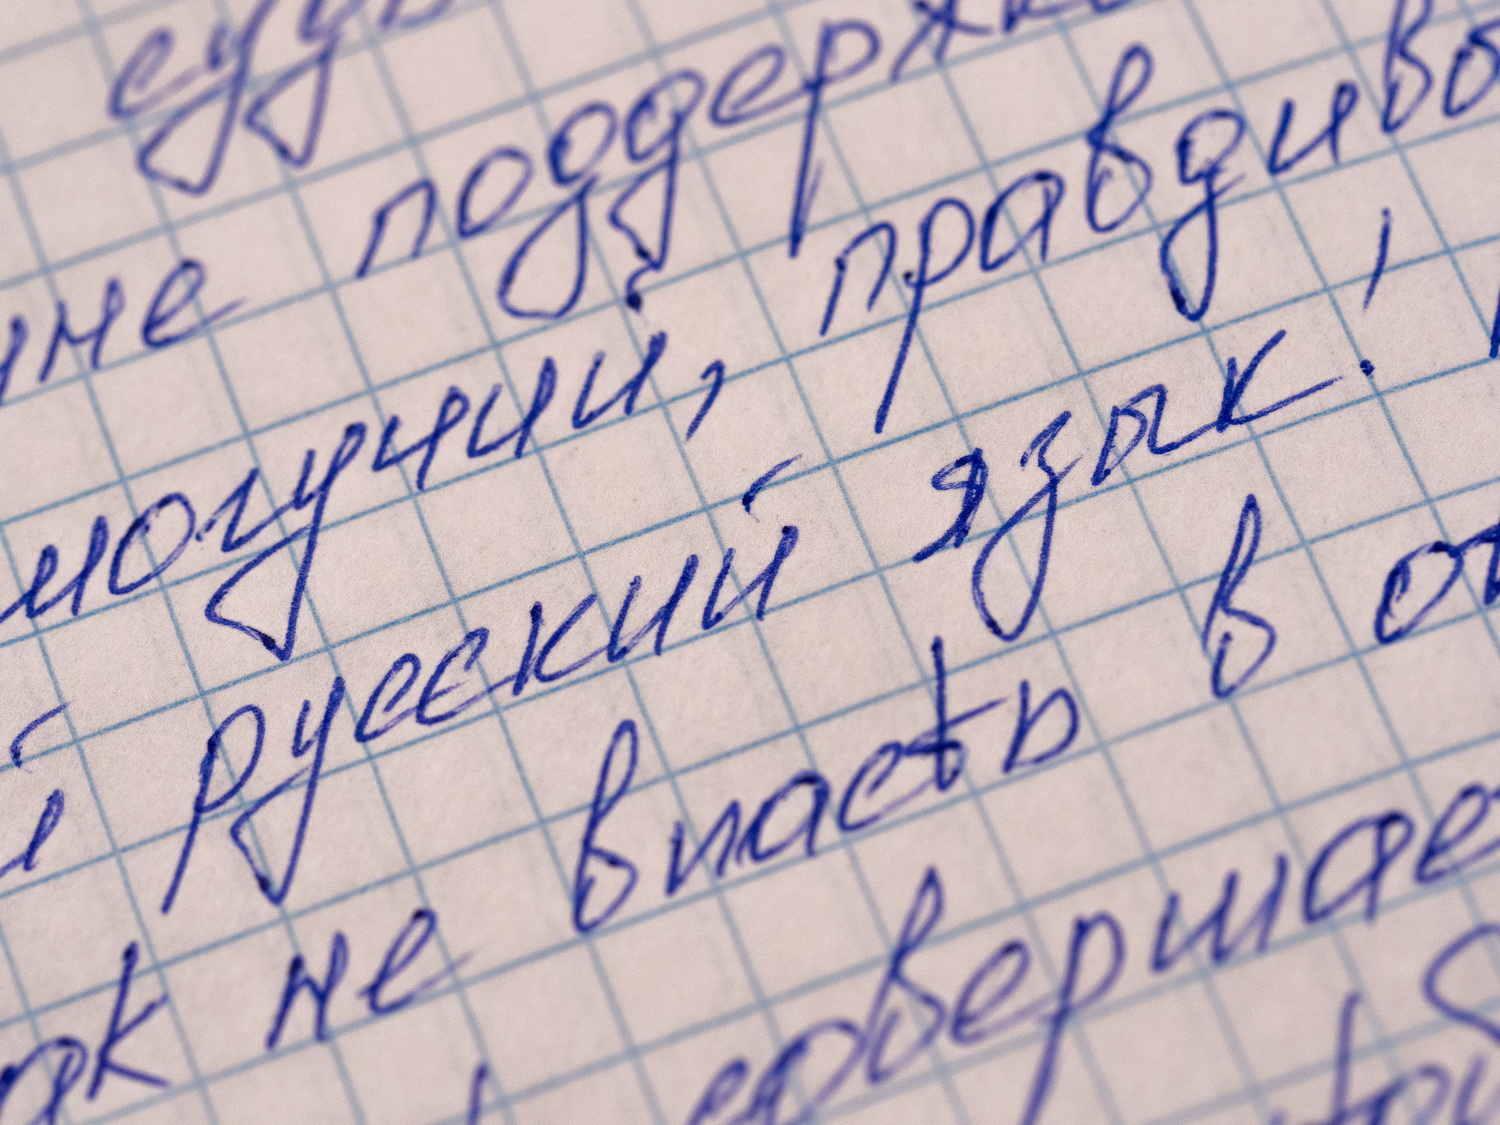 суд
мне поддержк
могучий, правдиво
й русский язык!
ак не впасть в от
совершае